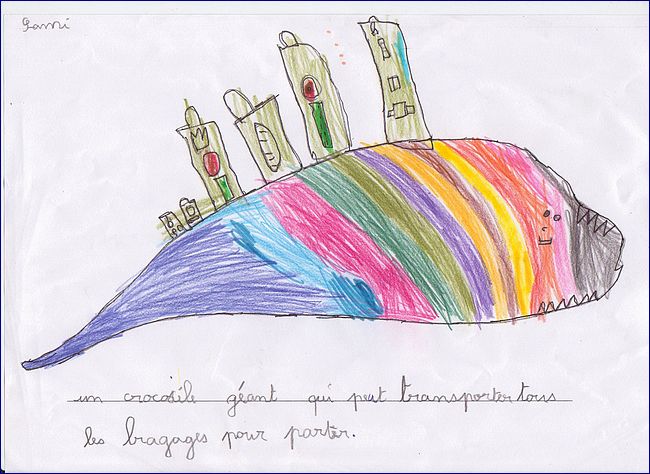 Rami
un crocosile géant qui peut transporter tous
les bragages pour parter.